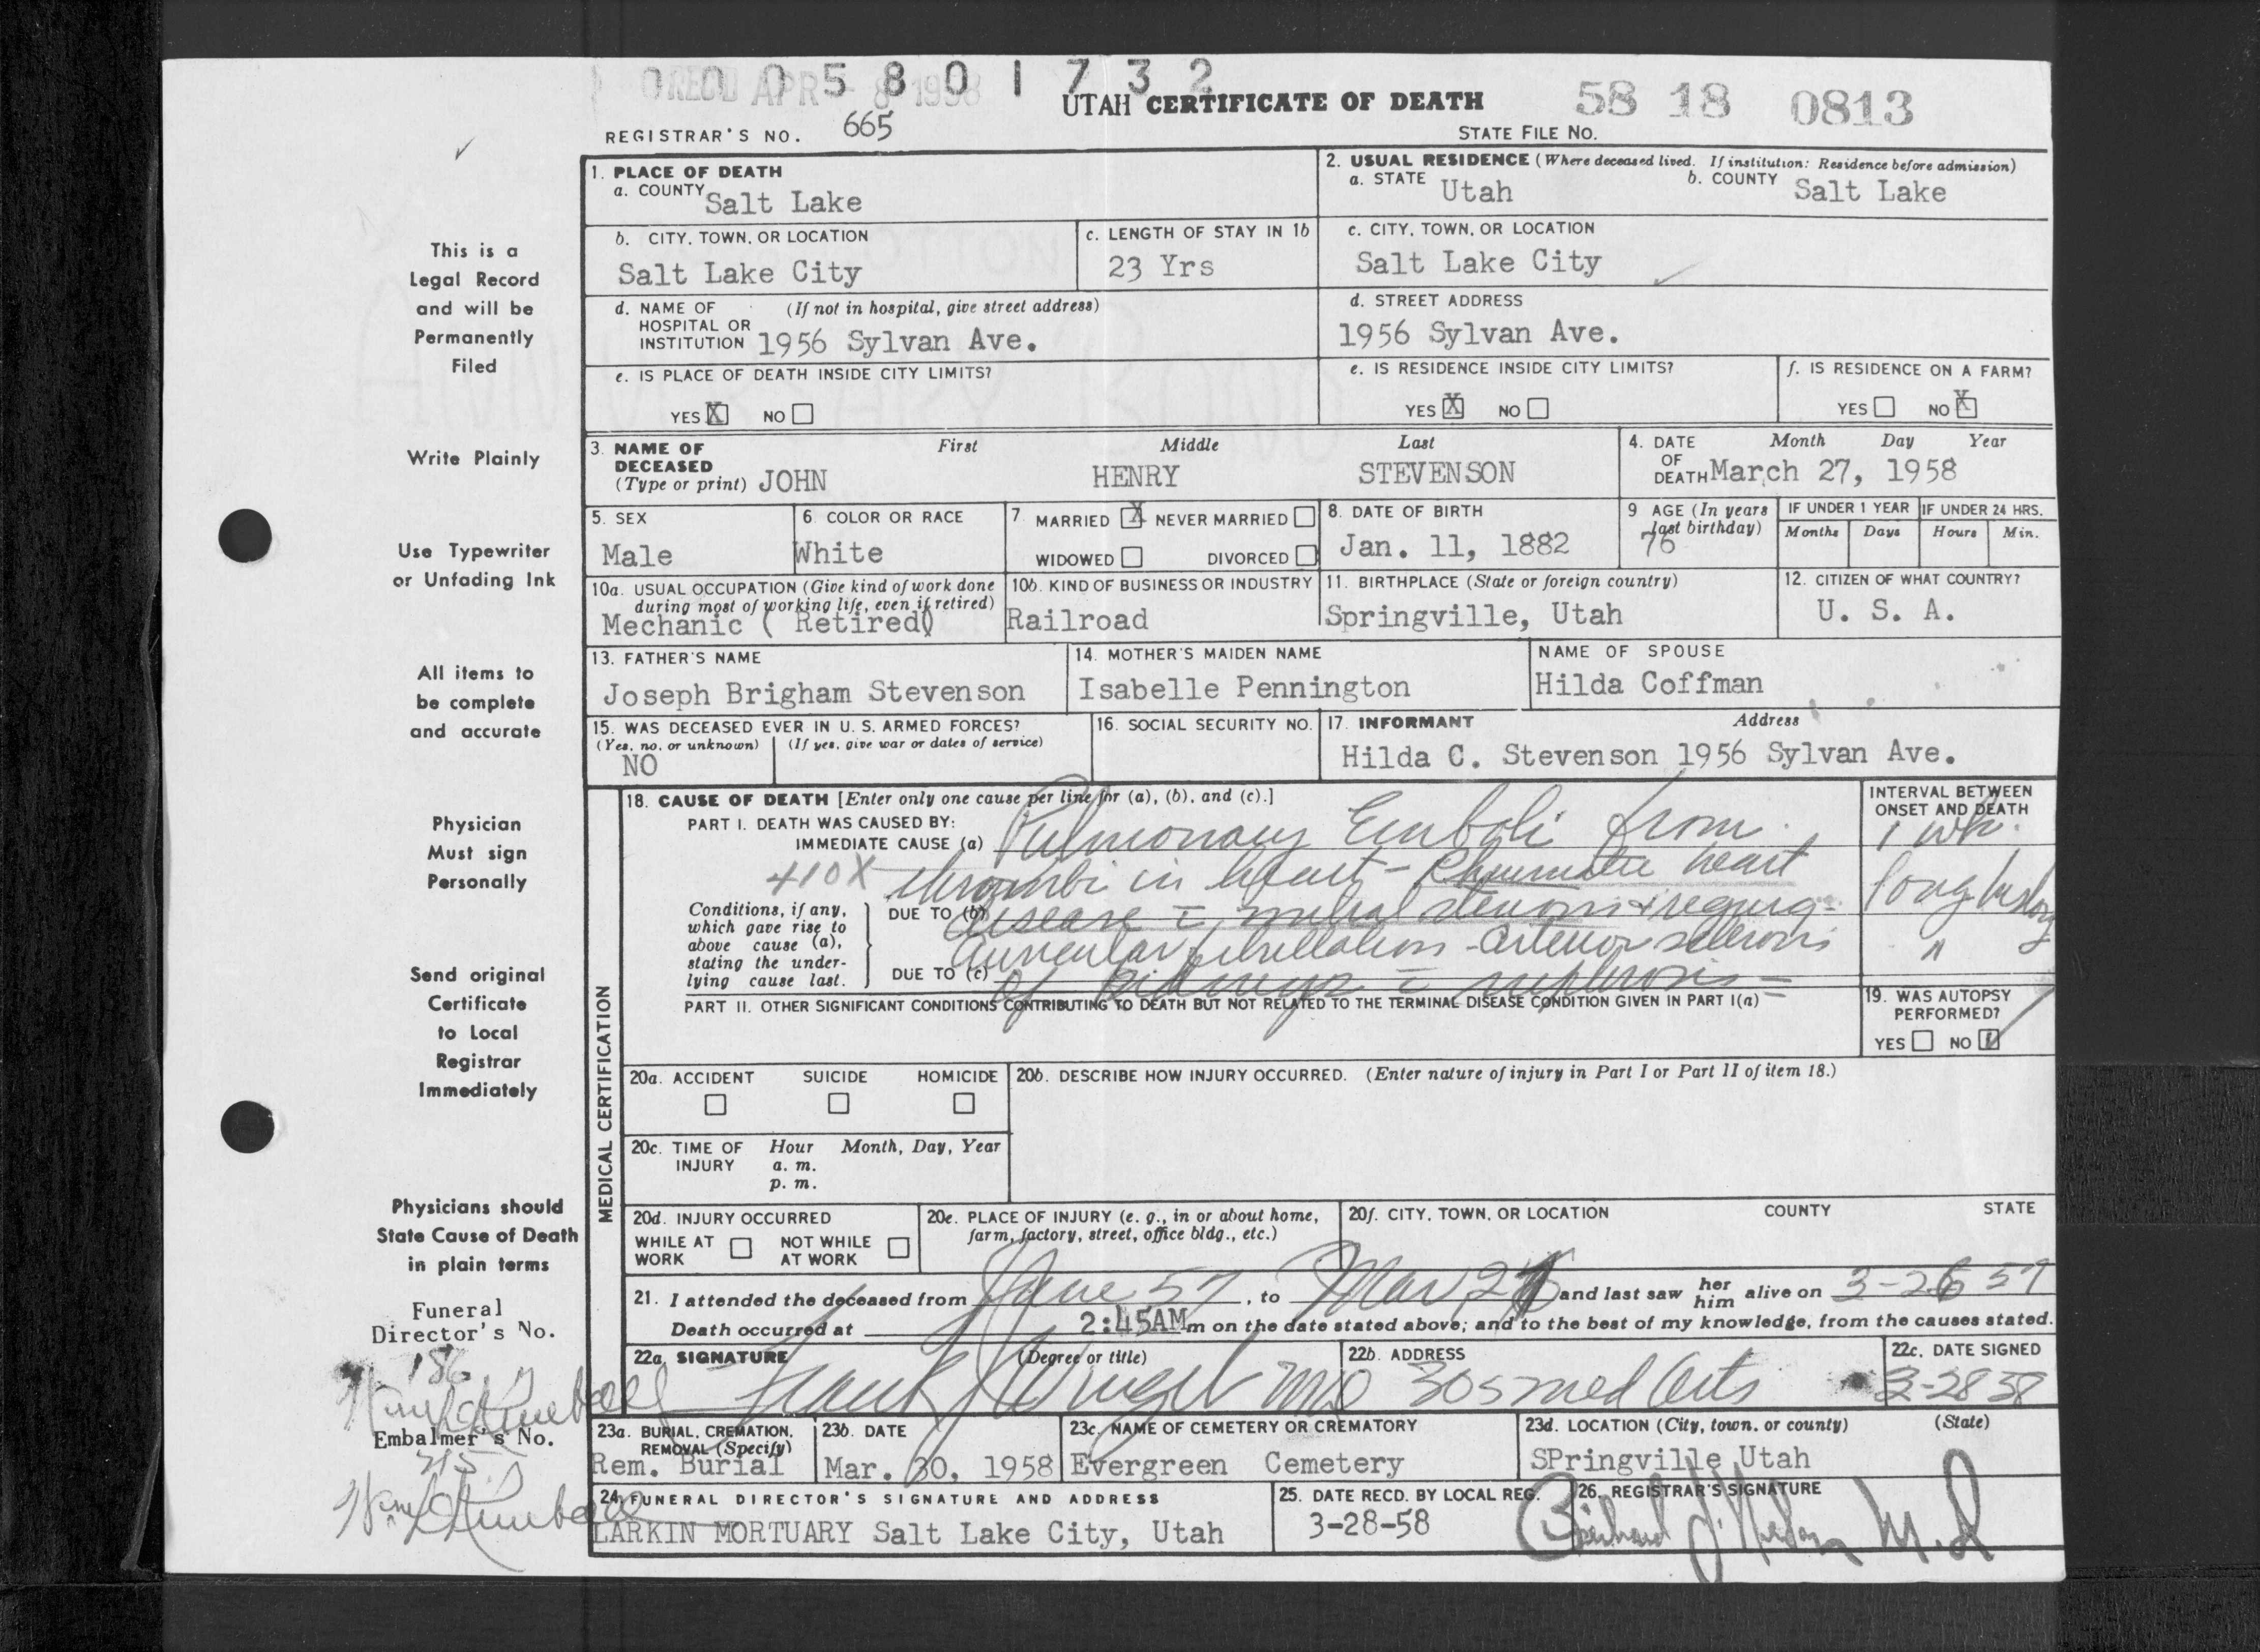 0005801732
RECD APR 8 1958
UTAH CERTIFICATE OF DEATH
58 18 0813
REGISTRAR'S NO. 665
STATE FILE NO.
1. PLACE OF DEATH
a. COUNTY Salt Lake
2. USUAL RESIDENCE (Where deceased lived. If institution: Residence before admission)
a. STATE Utah b. COUNTY Salt Lake
b. CITY, TOWN, OR LOCATION
Salt Lake City
c. LENGTH OF STAY IN 1b
23 Yrs
c. CITY, TOWN, OR LOCATION
Salt Lake City
d. NAME OF HOSPITAL OR INSTITUTION (If not in hospital, give street address)
1956 Sylvan Ave.
d. STREET ADDRESS
1956 Sylvan Ave.
e. IS PLACE OF DEATH INSIDE CITY LIMITS?
YES X NO
e. IS RESIDENCE INSIDE CITY LIMITS?
YES X NO
f. IS RESIDENCE ON A FARM?
YES NO X
3. NAME OF DECEASED (Type or print)
First Middle Last
JOHN HENRY STEVENSON
4. DATE OF DEATH Month Day Year
March 27, 1958
5. SEX
Male
6 COLOR OR RACE
White
7 MARRIED X NEVER MARRIED
WIDOWED DIVORCED
8. DATE OF BIRTH
Jan. 11, 1882
9 AGE (In years last birthday)
76
IF UNDER 1 YEAR
Months Days
IF UNDER 24 HRS.
Hours Min.
10a. USUAL OCCUPATION (Give kind of work done during most of working life, even if retired)
Mechanic ( Retired)
10b. KIND OF BUSINESS OR INDUSTRY
Railroad
11. BIRTHPLACE (State or foreign country)
Springville, Utah
12. CITIZEN OF WHAT COUNTRY?
U. S. A.
13. FATHER'S NAME
Joseph Brigham Stevenson
14. MOTHER'S MAIDEN NAME
Isabelle Pennington
NAME OF SPOUSE
Hilda Coffman
15. WAS DECEASED EVER IN U. S. ARMED FORCES?
(Yes, no, or unknown) (If yes, give war or dates of service)
NO
16. SOCIAL SECURITY NO.
17. INFORMANT Address
Hilda C. Stevenson 1956 Sylvan Ave.
MEDICAL CERTIFICATION
18. CAUSE OF DEATH [Enter only one cause per line for (a), (b), and (c).]
PART I. DEATH WAS CAUSED BY:
IMMEDIATE CAUSE (a) Pulmonary Emboli from
410X thrombi in heart - Rheumatic heart
Conditions, if any, which gave rise to above cause (a), stating the underlying cause last.
DUE TO (b) disease c mitral stenosis + regurg-
auricular fibrillation - arterior sclerosis
DUE TO (c) of kidneys c nephrosis
INTERVAL BETWEEN ONSET AND DEATH
1 wk.
long history
"
PART II. OTHER SIGNIFICANT CONDITIONS CONTRIBUTING TO DEATH BUT NOT RELATED TO THE TERMINAL DISEASE CONDITION GIVEN IN PART I(a)
19. WAS AUTOPSY PERFORMED?
YES NO
20a. ACCIDENT SUICIDE HOMICIDE
20b. DESCRIBE HOW INJURY OCCURRED. (Enter nature of injury in Part I or Part II of item 18.)
20c. TIME OF INJURY Hour Month, Day, Year
a. m.
p. m.
20d. INJURY OCCURRED
WHILE AT WORK NOT WHILE AT WORK
20e. PLACE OF INJURY (e. g., in or about home, farm, factory, street, office bldg., etc.)
20f. CITY, TOWN, OR LOCATION COUNTY STATE
21. I attended the deceased from June 57, to Mar and last saw her him alive on 3-26 57
Death occurred at 2:45AM m on the date stated above; and to the best of my knowledge, from the causes stated.
22a. SIGNATURE (Degree or title)
Frank MD
22b. ADDRESS
305 Med Arts
22c. DATE SIGNED
3-28 58
23a. BURIAL, CREMATION, REMOVAL (Specify)
Rem. Burial
23b. DATE
Mar. 30, 1958
23c. NAME OF CEMETERY OR CREMATORY
Evergreen Cemetery
23d. LOCATION (City, town, or county) (State)
SPringville Utah
24. FUNERAL DIRECTOR'S SIGNATURE AND ADDRESS
LARKIN MORTUARY Salt Lake City, Utah
25. DATE RECD. BY LOCAL REG.
3-28-58
26. REGISTRAR'S SIGNATURE
M.D
This is a
Legal Record
and will be
Permanently
Filed
Write Plainly
Use Typewriter
or Unfading Ink
All items to
be complete
and accurate
Physician
Must sign
Personally
Send original
Certificate
to Local
Registrar
Immediately
Physicians should
State Cause of Death
in plain terms
Funeral
Director's No.
186
Embalmer's No.